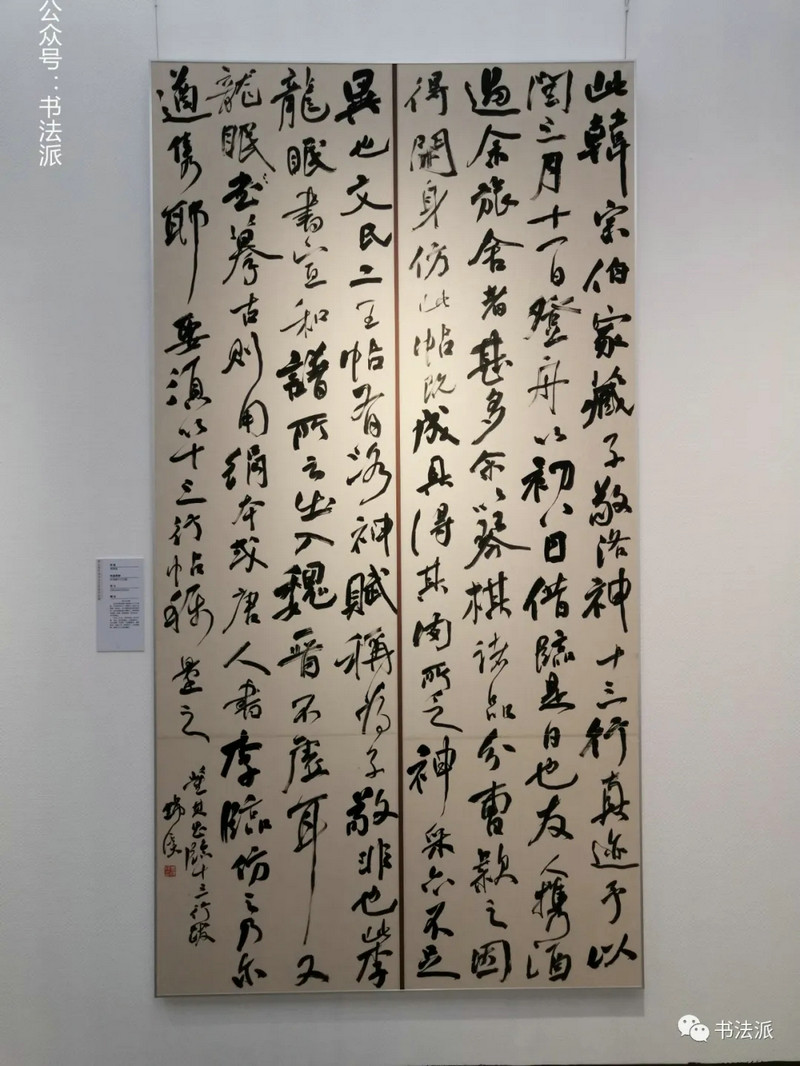 此韓宗伯家藏子敬洛神十三行真迹予以
閏三月十一日登舟以初八日借臨是日也友人攜酒
過余旅舍者甚多余以琴棋諸品分曹款之因
得閒身仿此帖既成具得其肉所乏神采亦不足
異也文氏二王帖有洛神賦稱為子敬非也此李
龍眠書宣和譜所云出入魏晉不虛耳又
龍眠書摹古則用絹本或唐人書李臨仿之乃尔
遒雋耶要須以十三行帖稱量之
董其昌臨十三行跋
公众号：书法派
书法派